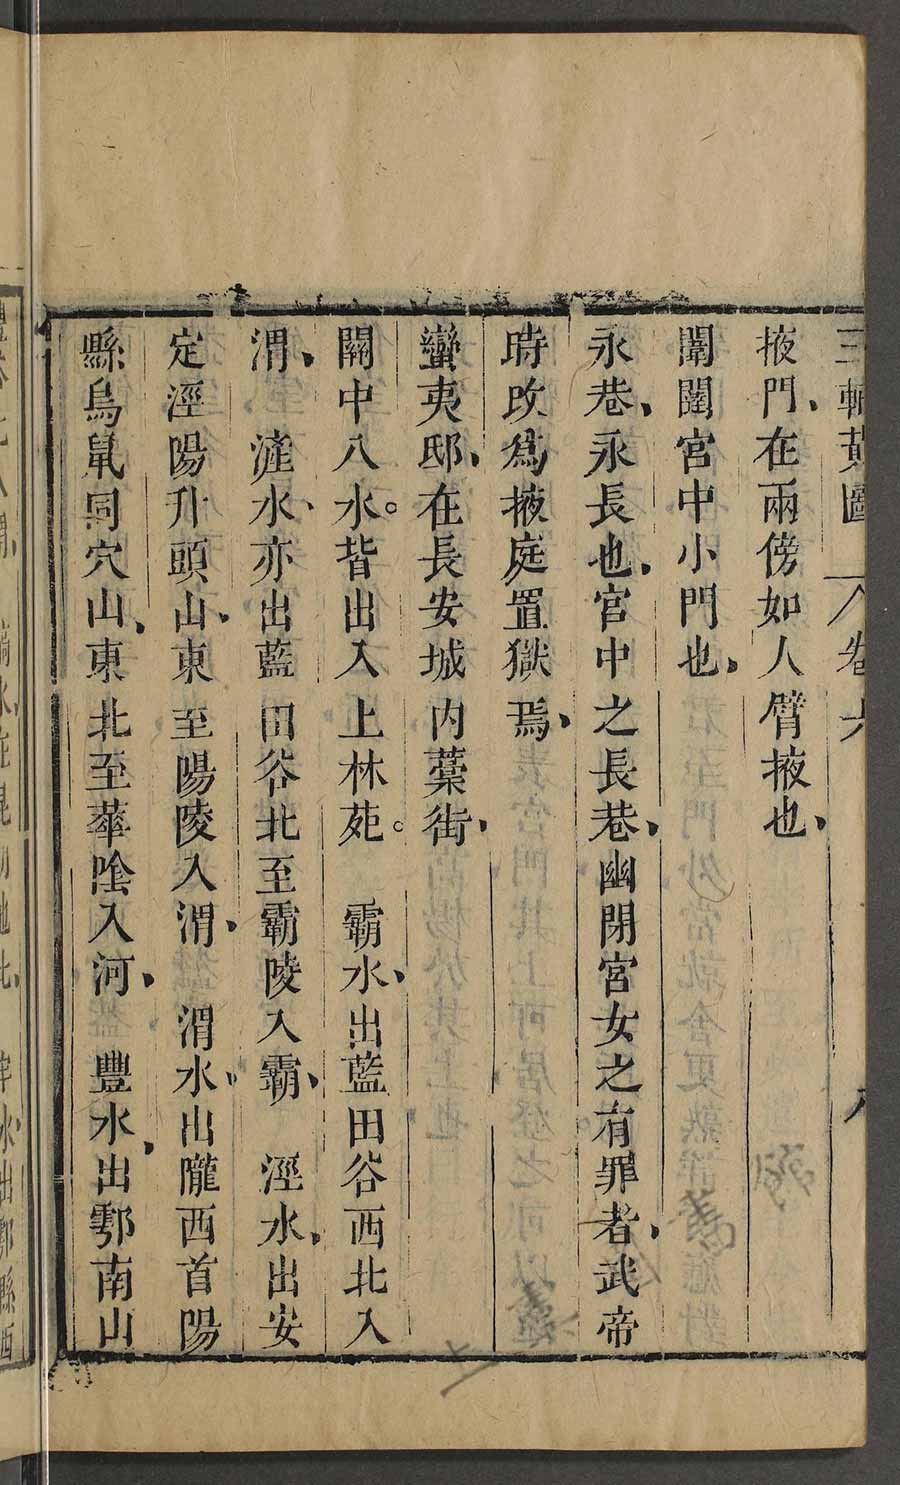 三輔黃圖 卷六 八
掖門、在兩傍如人臂掖也、
闈闥宮中小門也、
永巷、永長也、宮中之長巷、幽閉宮女之有罪者、武帝
時改為掖庭置獄焉、
蠻夷邸、在長安城內藁街、
關中八水。皆出入上林苑。 霸水、出藍田谷西北入
渭、 滻水、亦出藍田谷北至霸陵入霸、 涇水、出安
定涇陽幵頭山、東至陽陵入渭、 渭水、出隴西首陽
縣鳥鼠同穴山、東北至華陰入河、 豐水、出鄠南山